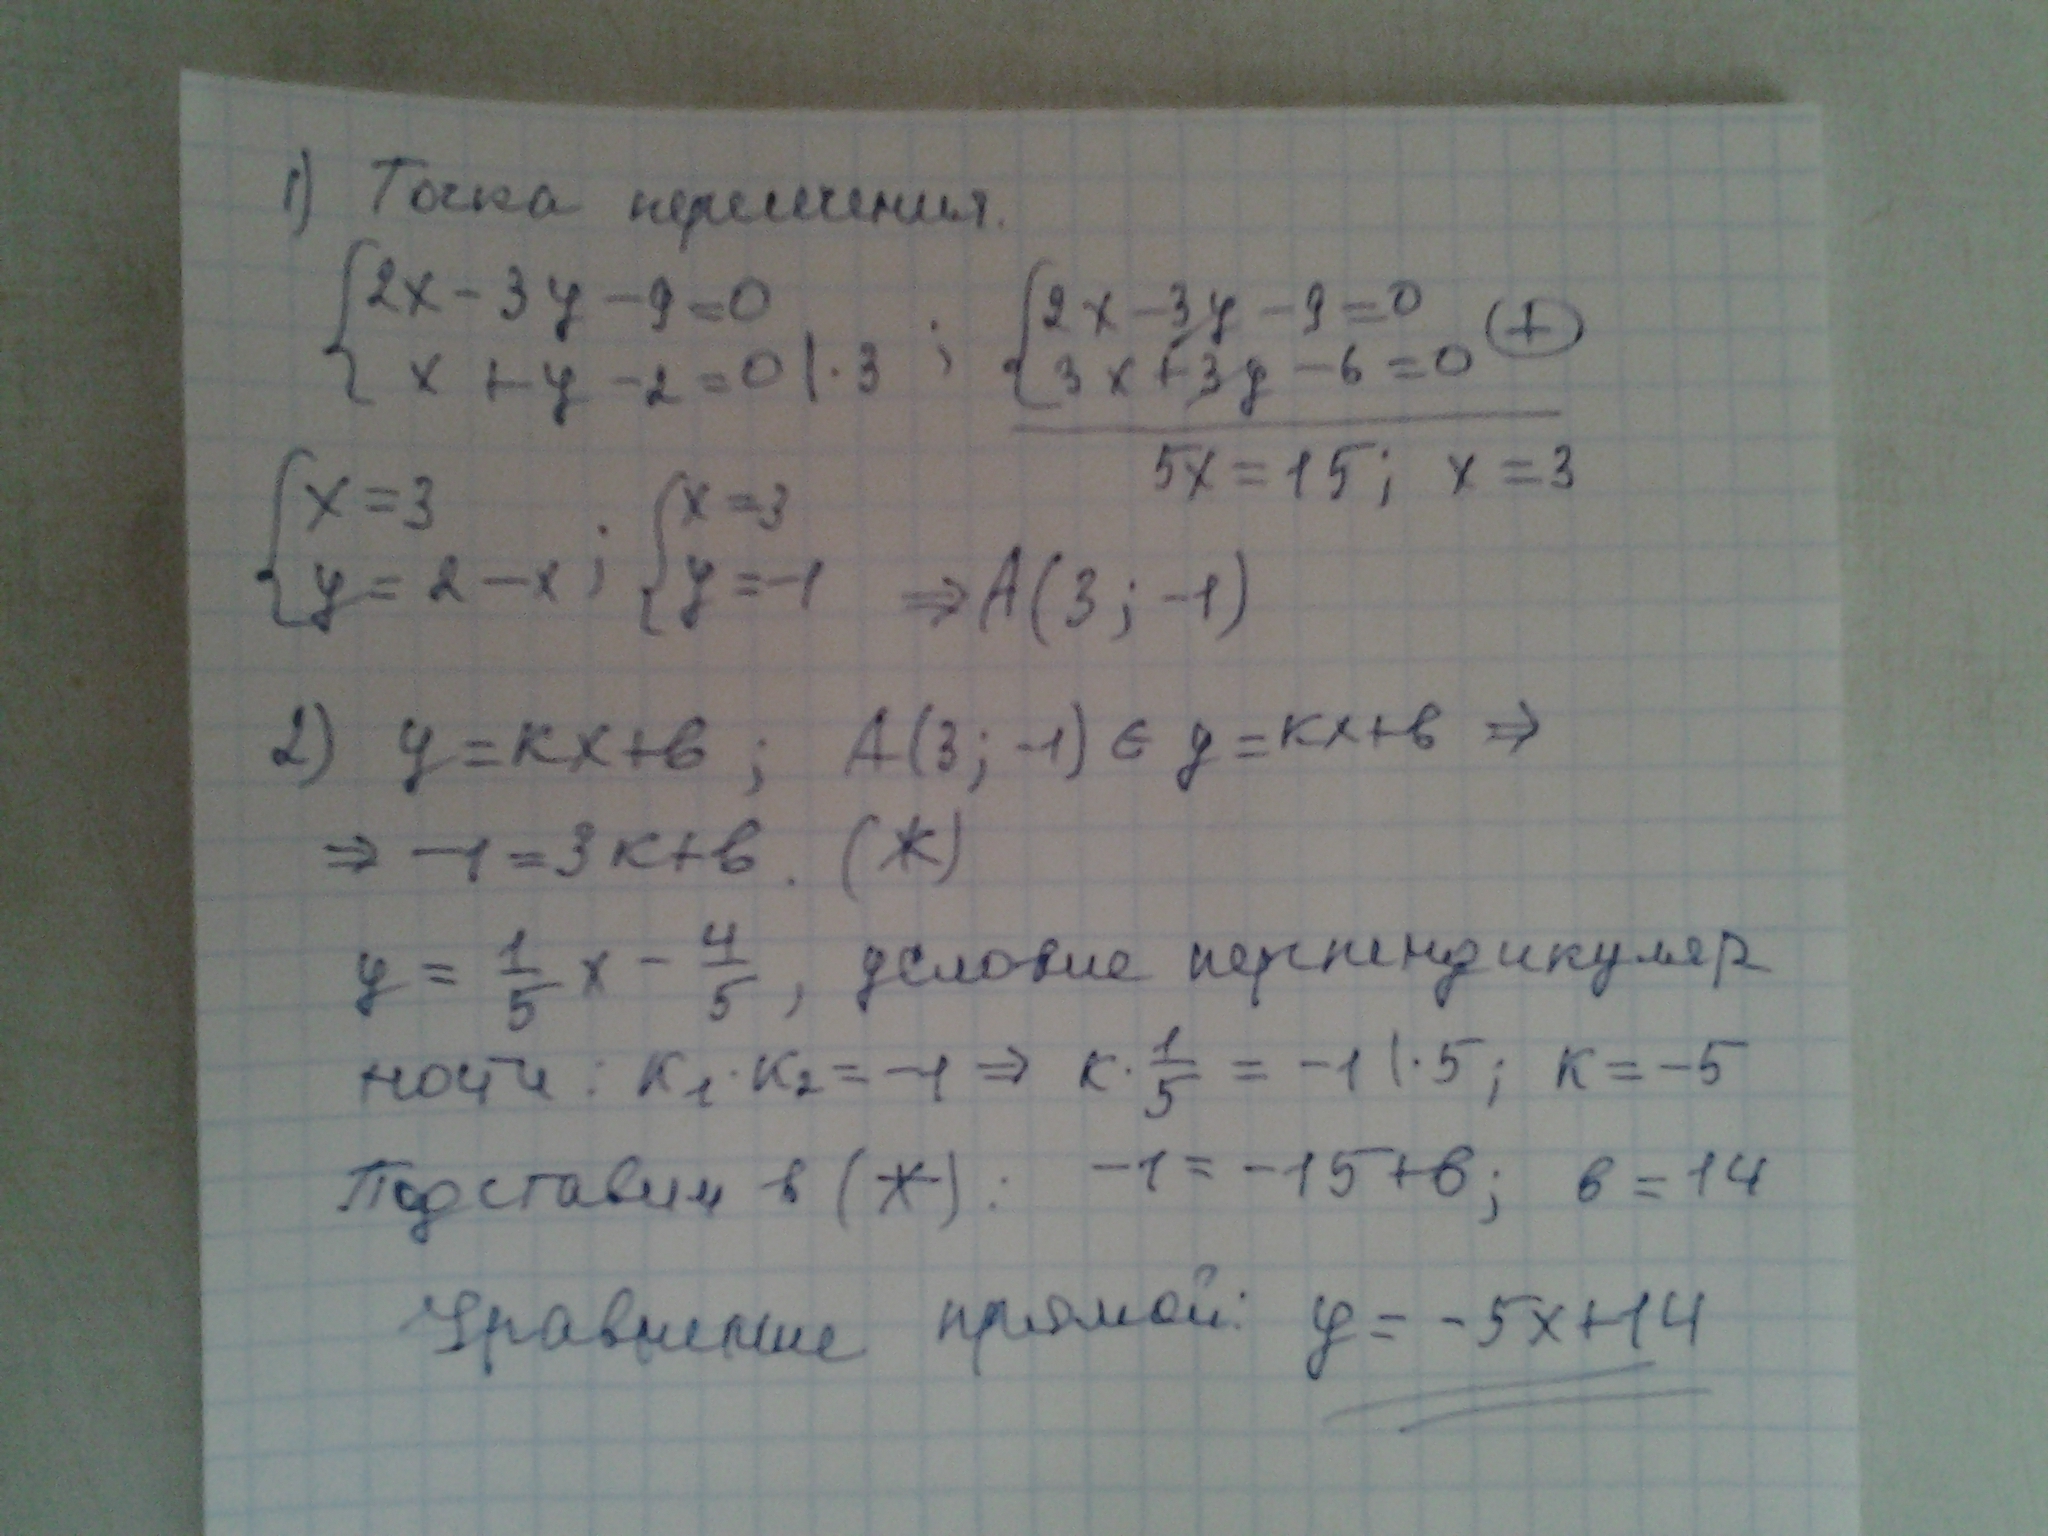 1) Точка пересечения.
{2x - 3y - 9 = 0 ; {2x - 3y - 9 = 0
x + y - 2 = 0 | · 3 3x + 3y - 6 = 0 (+)
5x = 15; x = 3
{x = 3 ; {x = 3
y = 2 - x y = -1 ⇒ A(3; -1)
2) y = кx + в ; A(3; -1) ∈ y = кx + в ⇒
⇒ -1 = 3к + в. (*)
y = 1/5 x - 4/5, условие перпендикуляр
ности: к₁ · к₂ = -1 ⇒ к · 1/5 = -1 | · 5; к = -5
Подставим в (*): -1 = -15 + в; в = 14
Уравнение прямой: y = -5x + 14